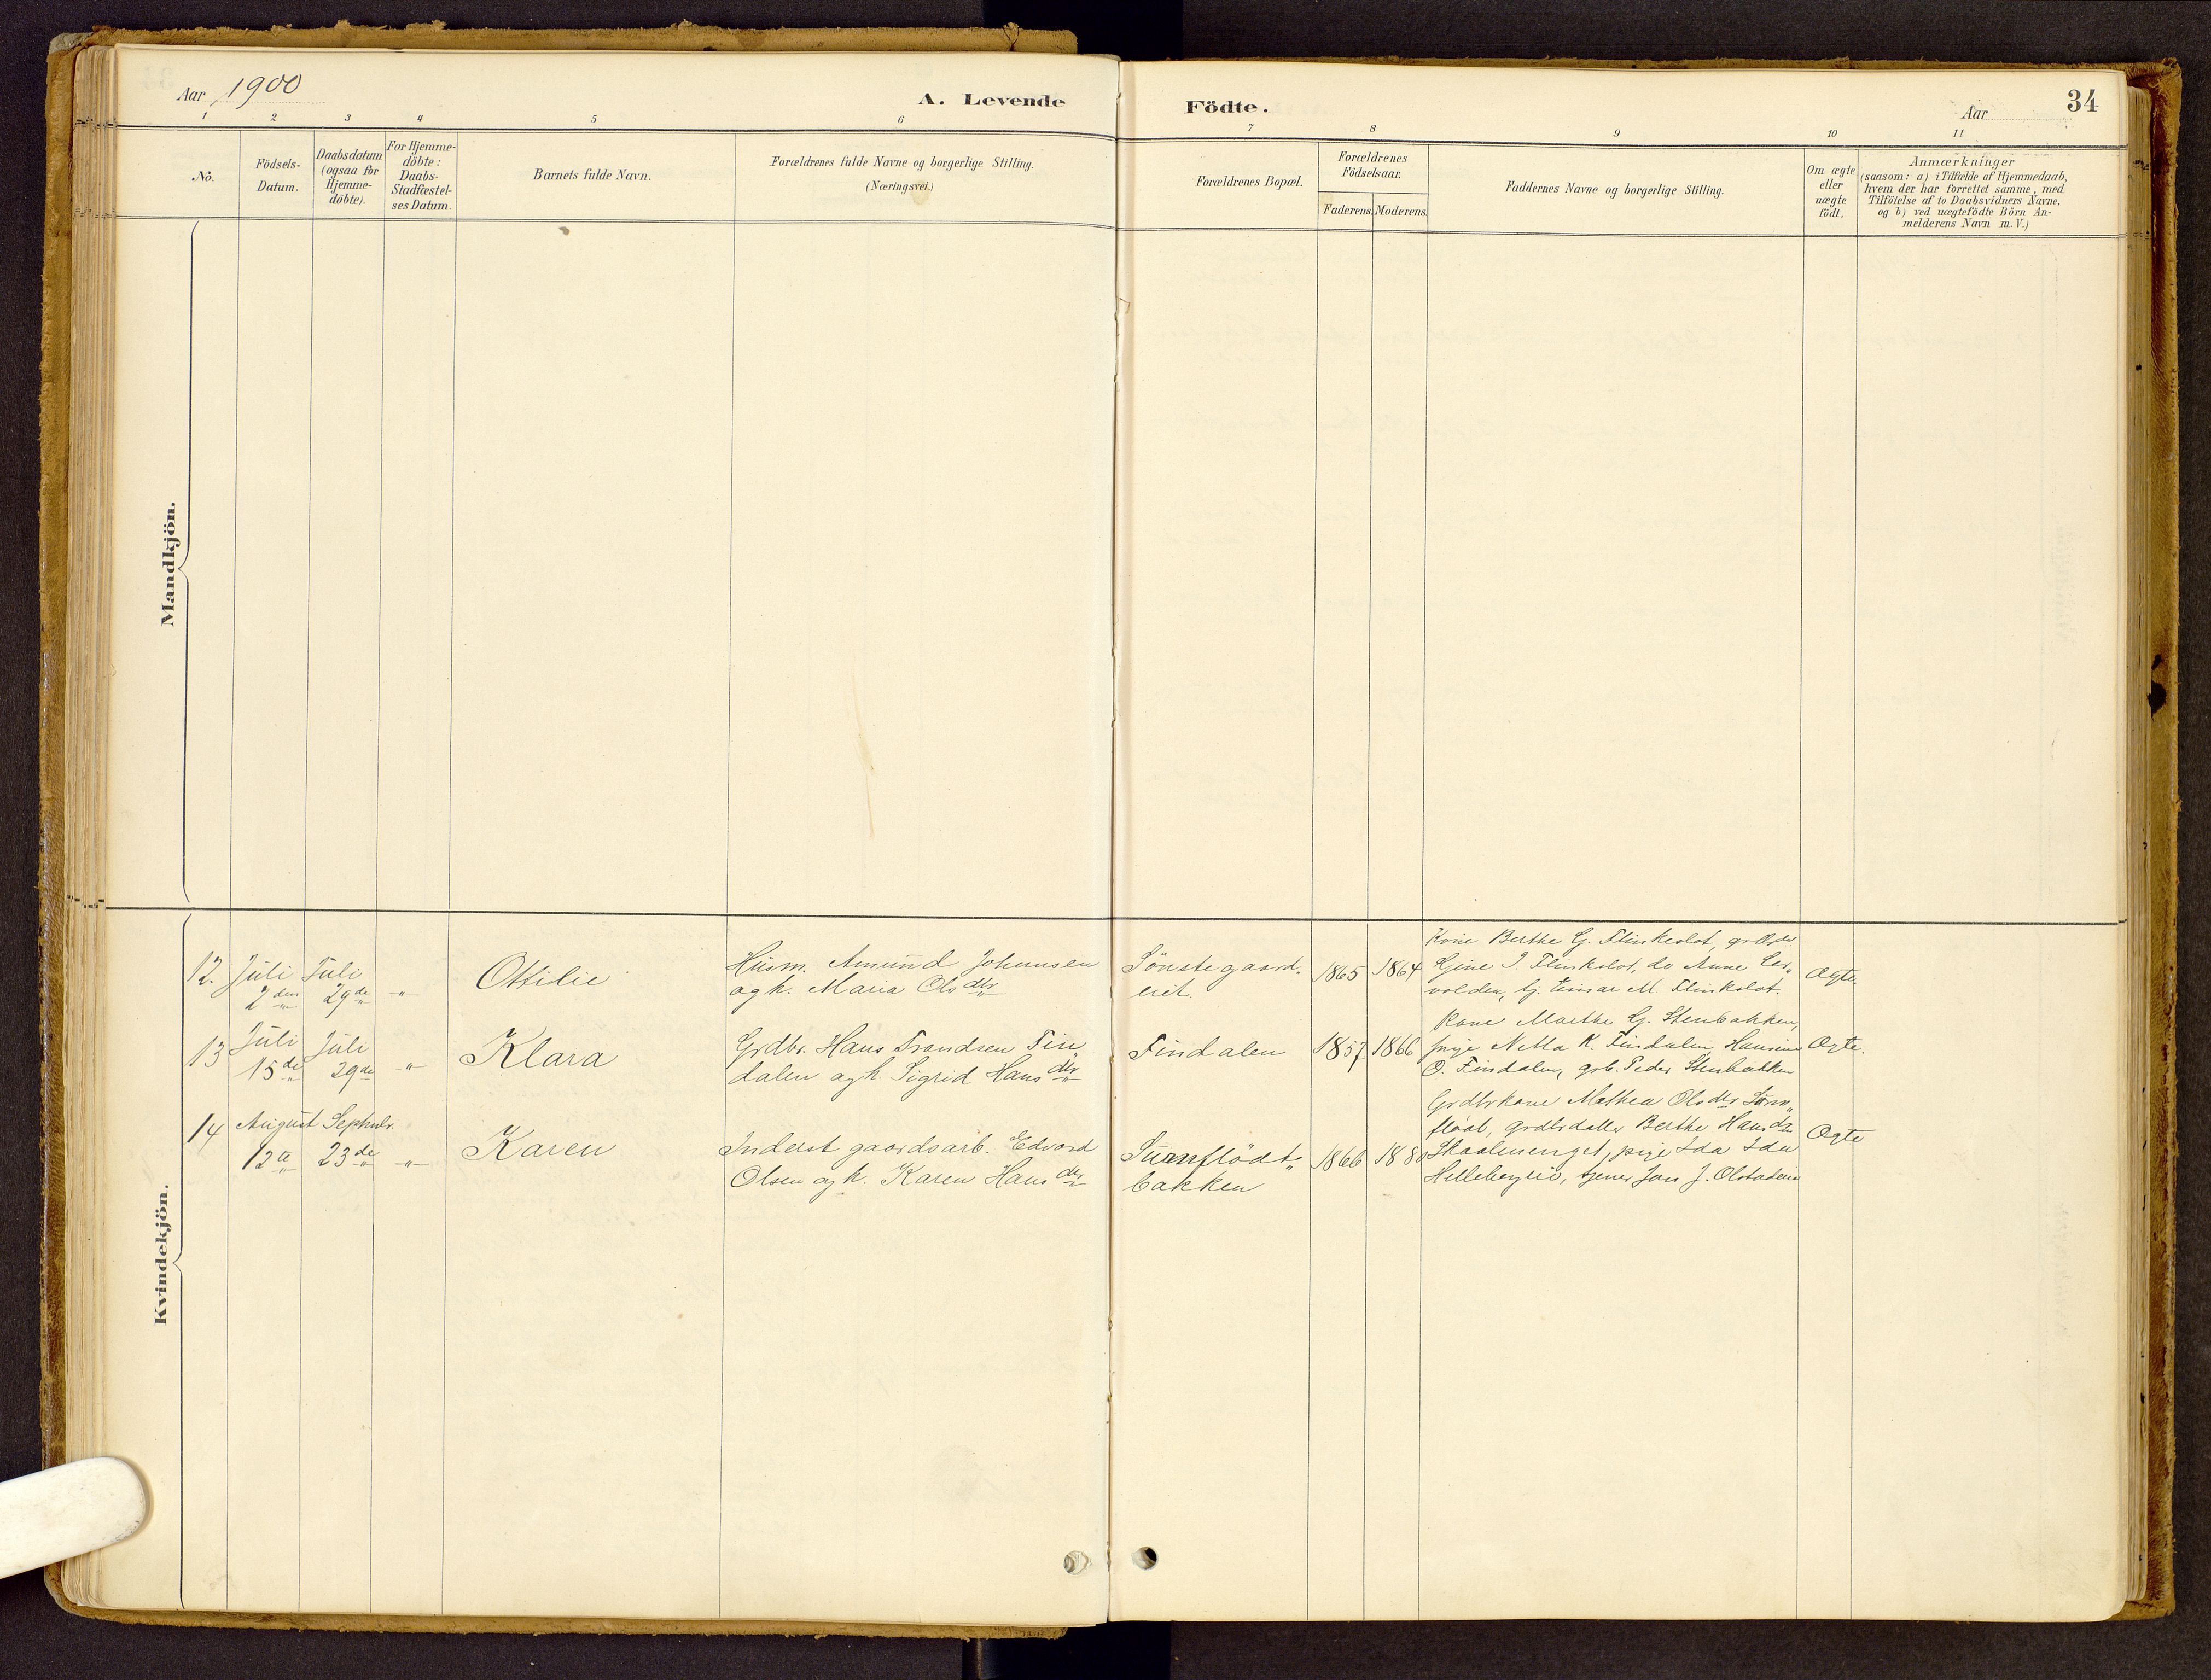 Aar 1900
A. Levende
Födte.
Aar
34
1 2 3 4 5 6 7 8 9 10 11
No.
Födsels-
Datum.
Daabsdatum
(ogsaa for
Hjemme-
döbte).
For Hjemme-
döbte:
Daabs-
Stadfæstel-
ses Datum.
Barnets fulde Navn.
Forældrenes fulde Navne og borgerlige Stilling.
(Næringsvei.)
Forældrenes Bopæl.
Forældrenes
Födselsaar.
Faderens. Moderens.
Faddernes Navne og borgerlige Stilling.
Om ægte
eller
uægte
födt.
Anmærkninger
(saasom: a) i Tilfælde af Hjemmedaab,
hvem der har forrettet samme, med
Tilföielse af to Daabsvidners Navne,
og b) ved uægtefödte Börn An-
melderens Navn m. V.)
Mandkjön.
Kvindekjön.
12.
Juli
2den
Juli
29de
"
Ottilie
Husm. Amund Johannsen
og k. Maria Olsdtr
Sönstegaard-
eiet
1865
1864
Kone Berthe G. Flinkeslot,
Gjine J. Flinkslot, do Anne
volden, Einar M. Flinkslot.
Ægte.
13
Juli
15de
Juli
29de
"
Klara
Grdbr. Hans Trondsen Fin„
dalen og k. Sigrid Hansdtr
Findalen
1857
1866
Kone Marthe G. Stenbakken,
pige Netta K. Findalen, Hansine
O. Findalen, grb. Peder Stenbakken
Ægte.
14
August
12te
Septmbr.
23de
"
Karen
Inderst gaardsarb. Edvard
Olsen og k. Karen Hansdtr
Surnflödt„
bakken
1866
1880
Grdbrkone Mathea Olsdtr Surn„
flödt, grdbrdatter Berthe Hansdtr
Skaalenenget, pige Ida Ida
tjener Jons J. Olstadeie
Ægte